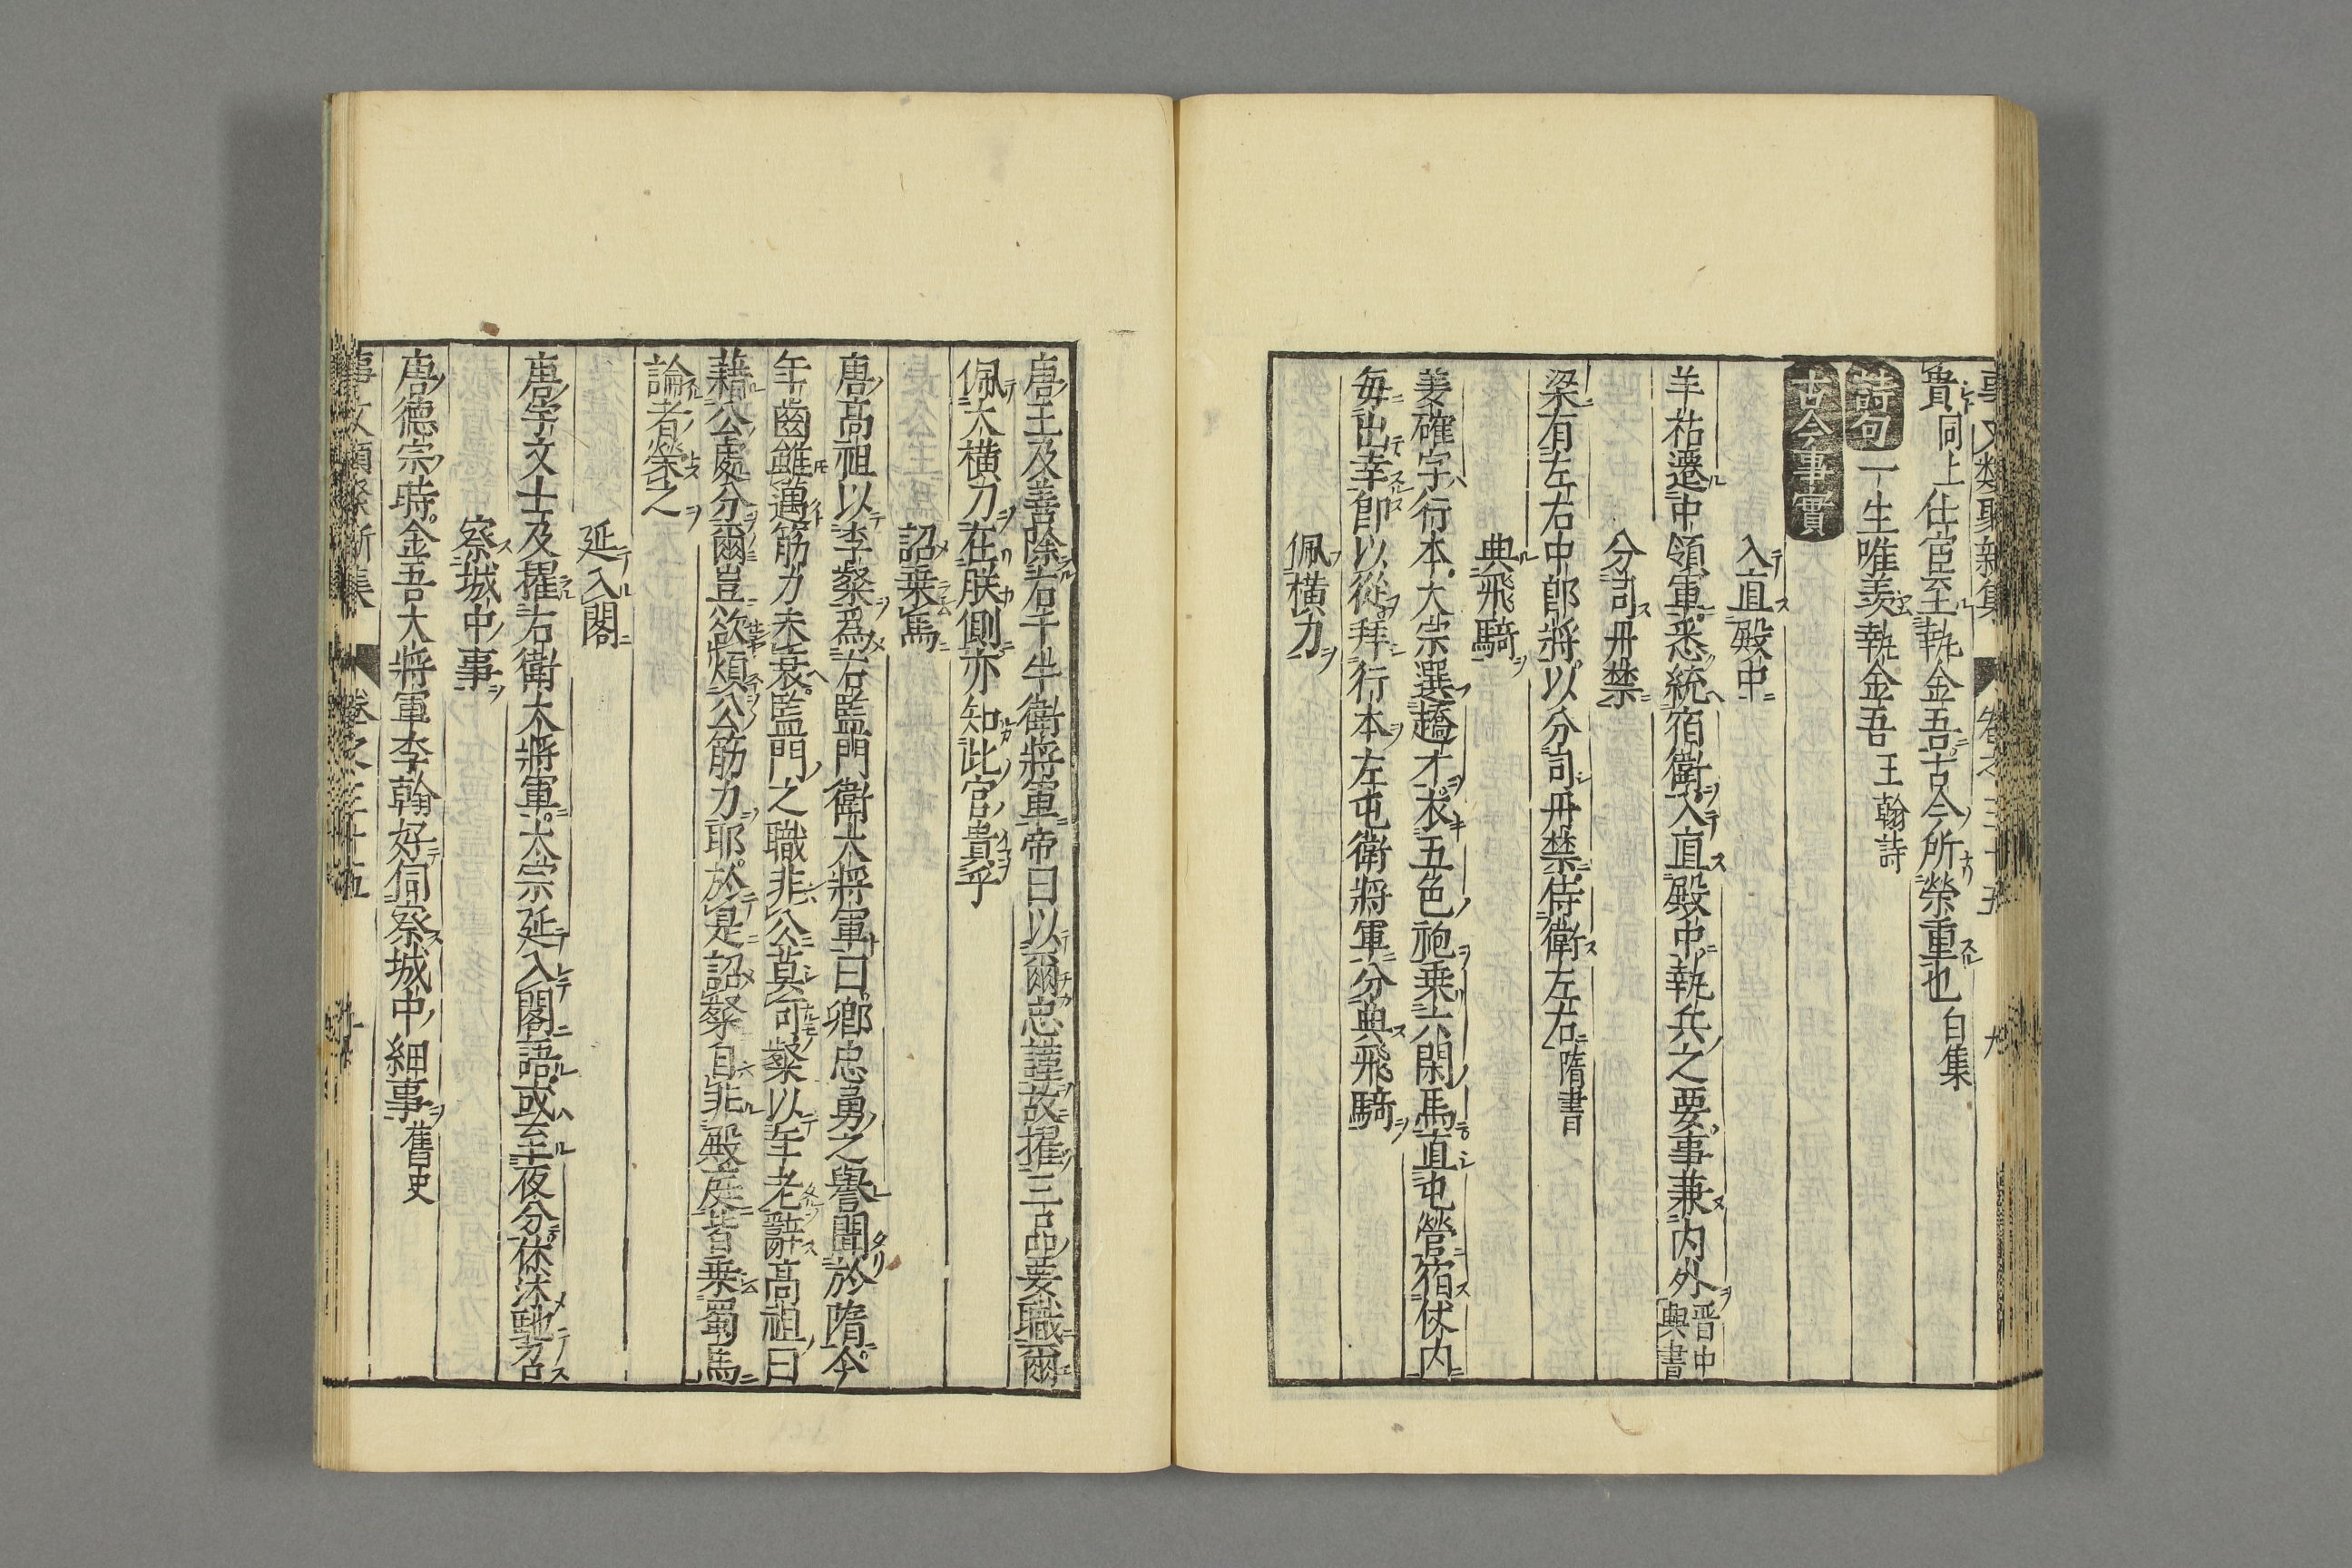 事文類聚新集 卷之三十五
貴同上仕宦至執金吾古今所榮重也白集
詩句 一生唯羨執金吾王翰詩
古今事實
入直殿中
羊祜遷中領軍悉統宿衛入直殿中執兵之要事兼內外晉中興書
分司丹禁
梁有左右中郎將以分司丹禁侍衛左右隋書
典飛騎
姜確字行本大宗選趫才衣五色袍乗六閑馬直屯營宿仗内
毎出幸即以從拜行本左屯衛將軍分典飛騎
佩横刀
唐王及善除右千牛衛將軍帝曰以爾忠謹故擢三品要職爾
佩大横刀在朕側亦知此官貴乎
詔乗馬
唐高祖以李粲爲右監門衛大將軍曰卿忠勇之譽聞於隋今
年齒雖邁筋力未衰監門之職非公莫可粲以年老辭高祖曰
藉公處分爾豈欲煩公筋力耶於是詔粲自非殿庭皆乗蜀馬
論者榮之
延入閤
唐宇文士及擢右衛大將軍太宗延入閤語或至夜分休沐馳召
察城中事
唐德宗時金吾大將軍李翰好伺察城中細事舊史
事文類聚新集 卷之三十五